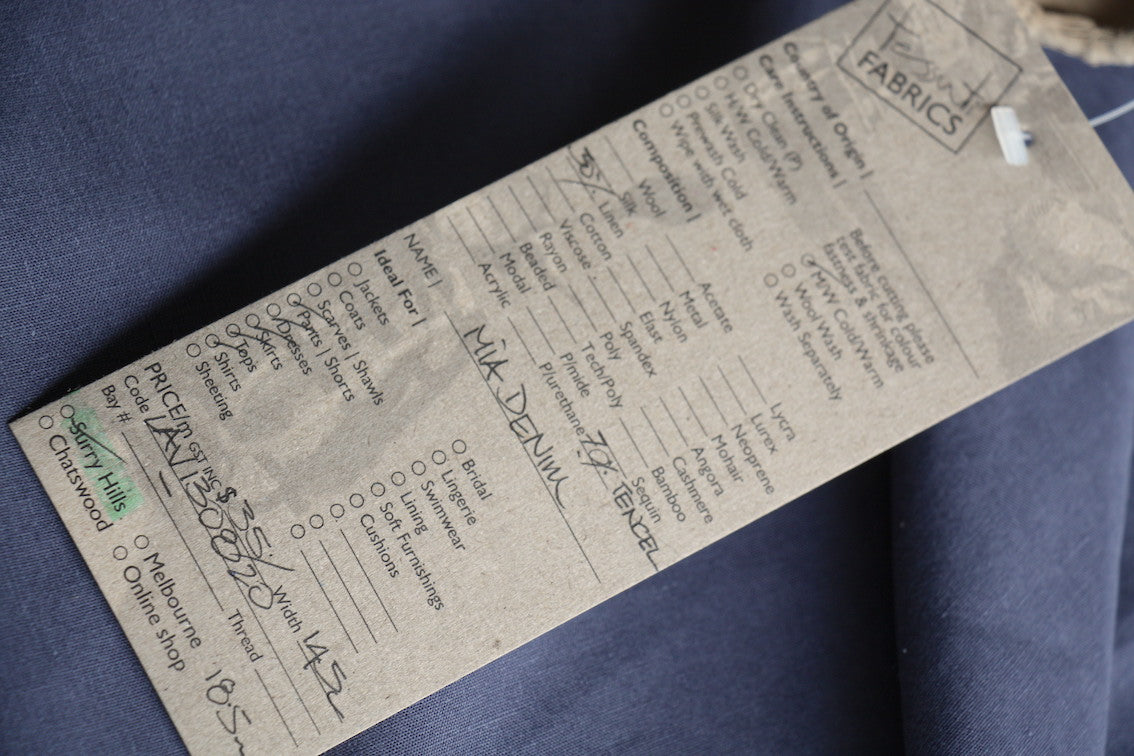 Tessuti
FABRICS
Country of Origin |
Care Instructions |
Dry Clean (P)
H/W Cold/Warm
Silk Wash
Prewash Cold
Wipe with wet cloth
Before cutting please
test fabric for colour
fastness & shrinkage
M/W Cold/Warm
Wool Wash
Wash Separately
Composition |
Wool
Silk
Linen
Cotton
Viscose
Rayon
Beaded
Modal
Acrylic
Acetate
Metal
Nylon
Elast
Spandex
Poly
Tech/Poly
P/mide
Plurethane
Lycra
Lurex
Neoprene
Mohair
Angora
Cashmere
Bamboo
Sequin
TENCEL
NAME | MIA DENIM
Ideal For |
Jackets
Coats
Scarves | Shawls
Pants | Shorts
Dresses
Skirts
Tops
Shirts
Sheeting
Bridal
Lingerie
Swimwear
Lining
Soft Furnishings
Cushions
PRICE/m GST INC $ 35/ Width 142
Code LAV1308020
Bay # Thread
Surry Hills
Chatswood
Melbourne
Online shop
18.5m